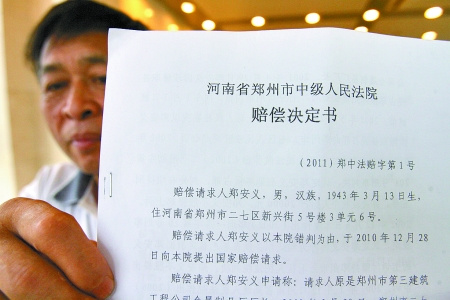 河南省郑州市中级人民法院
赔偿决定书
(2011)郑中法赔字第1号
赔偿请求人郑安义，男，汉族，1943年3月13日生，
住河南省郑州市二七区新兴街5号楼3单元6号。
赔偿请求人郑安义以本院错判为由，于2010年12月28
日向本院提出国家赔偿请求。
赔偿请求人郑安义申请称：请求人原是郑州市第三建筑